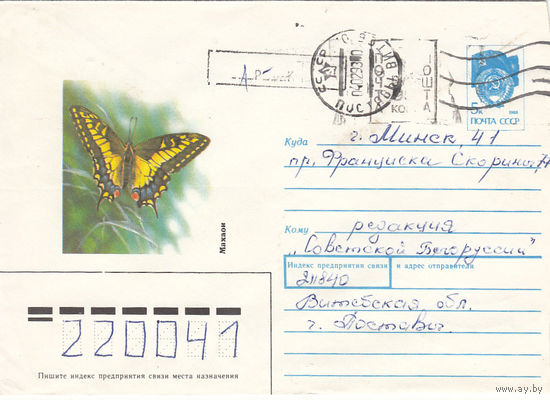 5к
ПОЧТА СССР
1988
ПОШТА
Куда г. Минск, 41
пр. Франциска Скорины
Кому редакция
„Советской Белоруссии"
Индекс предприятия связи и адрес отправителя
211840
Витебская обл.
г. Поставы
Махаон
220041
Пишите индекс предприятия связи места назначения
www.ay.by